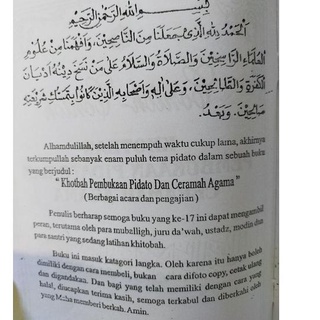 بِسْمِ اللهِ الرَّحْمٰنِ الرَّحِيْمِ
اَلْحَمْدُ لِلّٰهِ الَّذِيْ جَعَلَنَا مِنَ النَّاصِحِيْنَ، وَاَفْهَمَنَا مِنْ عُلُوْمِ
الْعُلَمَاءِ الرَّاسِخِيْنَ. وَالصَّلَاةُ وَالسَّلَامُ عَلٰى مَنْ نَسَخَ دِيْنُهُ اَدْيَانَ
الْكَفَرَةِ وَالطَّالِحِيْنَ، وَعَلٰى اٰلِهِ وَاَصْحَابِهِ الَّذِيْنَ كَانُوْا بِتَمَسُّكِ شَرِيْعَتِهِ
صَالِحِيْنَ. وَبَعْدُ.
Alhamdulillah, setelah menempuh waktu cukup lama, akhirnya
terkumpullah sebanyak enam puluh tema pidato dalam sebuah buku
yang berjudul :
" Khotbah Pembukaan Pidato Dan Ceramah Agama "
( Berbagai acara dan pengajian )
Penulis berharap semoga buku yang ke-17 ini dapat mengambil
peran, terutama oleh para muballigh, juru da'wah, ustadz, modin dan
para santri yang sedang latihan khitobah.
Buku ini masuk katagori langka. Oleh karena itu hanya boleh
dimiliki dengan cara membeli, bukan cara difoto copy, cetak ulang
dan digandakan. Dan bagi yang telah memiliki dengan cara yang
halal, diucapkan terima kasih, semoga terkabul dan diberkahi oleh
yang Maha memberi berkah. Amin.